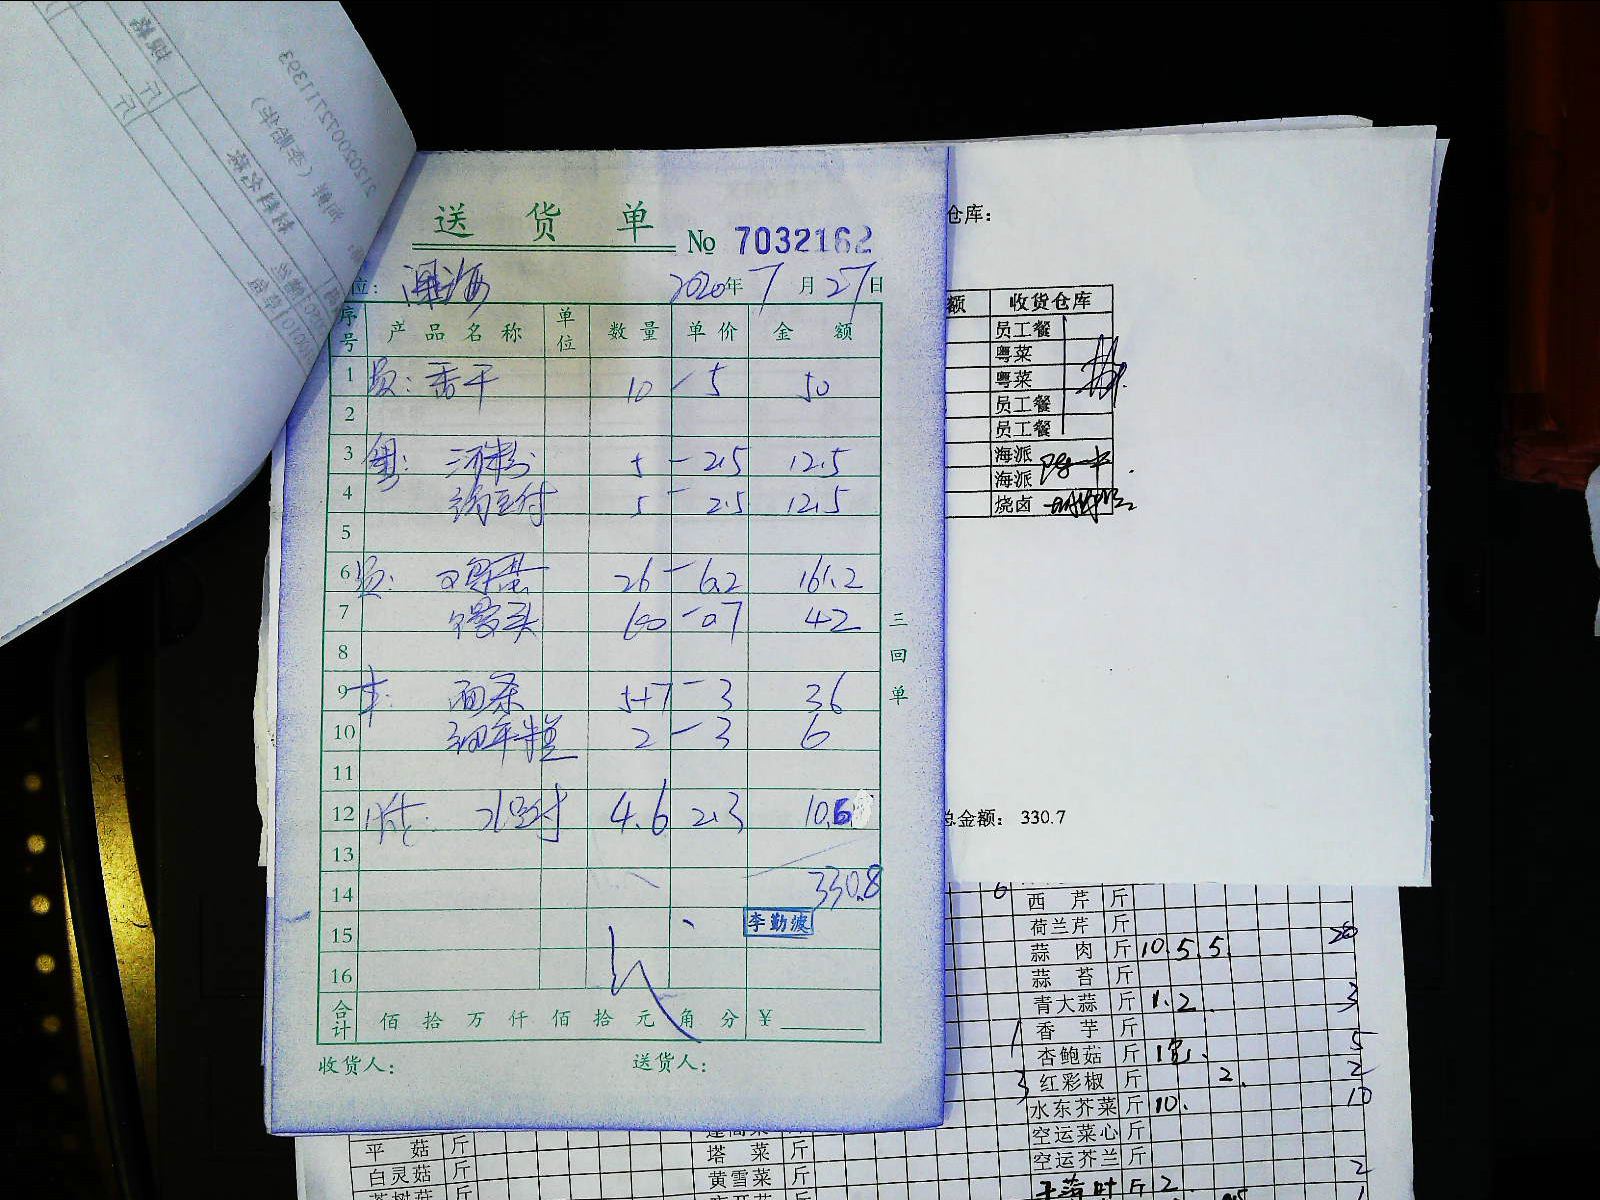 送 货 单
No 7032162
位: 澜海 2020年 7月27日
序号 产品名称 单位 数量 单价 金额
1 员: 香干 10 - 5 50
2
3 粤: 河粉 5 - 2.5 12.5
4 油豆付 5 - 2.5 12.5
5
6 员: 鸡蛋 26 - 6.2 161.2
7 馒头 60 - 0.7 42
8
9 本: 面条 5+7 - 3 36
10 细年糕 2 - 3 6
11
12 水豆付 4.6 2.3 10.6
13
14 330.8
15 李勤波
16
合计 佰拾万仟佰拾元角分 ¥
收货人: 送货人:
三回单
仓库:
额 收货仓库
员工餐
粤菜
粤菜
员工餐
员工餐
海派
海派
烧卤
总金额: 330.7
6 西芹 斤
荷兰芹 斤
蒜肉 斤 10.5.5. 20
蒜苔 斤
青大蒜 斤 1.2. 3
香芋 斤
杏鲍菇 斤 5
3 红彩椒 斤 2. 2
水东芥菜 斤 10. 10
空运菜心 斤
空运芥兰 斤 2
斤 2.
平菇 斤
白灵菇 斤
茶树菇 斤
塔菜 斤
黄雪菜 斤